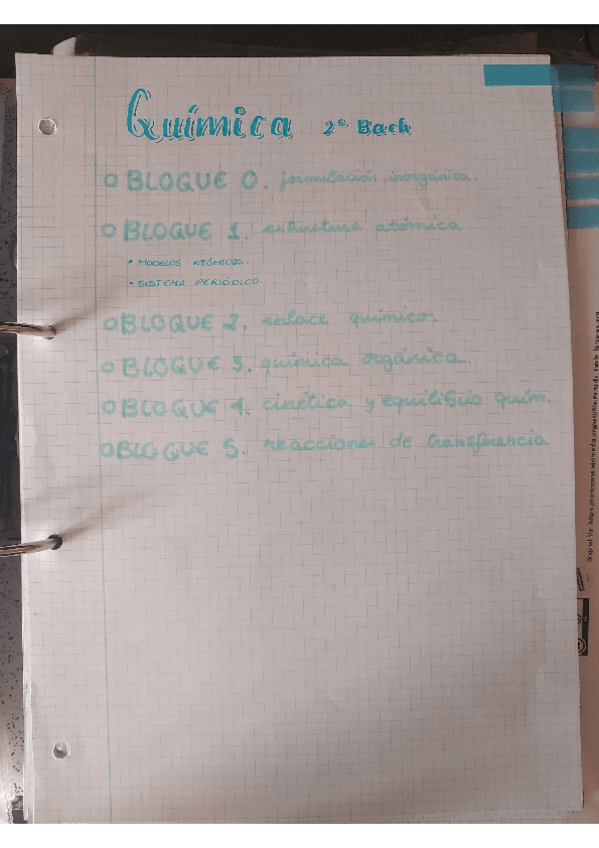 Química 2º Bach
BLOQUE 0. formulación inorgánica.
BLOQUE 1. estructura atómica
• MODELOS ATÓMICOS.
• SISTEMA PERIÓDICO
BLOQUE 2. enlace químico.
BLOQUE 3. química orgánica.
BLOQUE 4. cinética y equilibrio quím.
BLOQUE 5. reacciones de transferencia